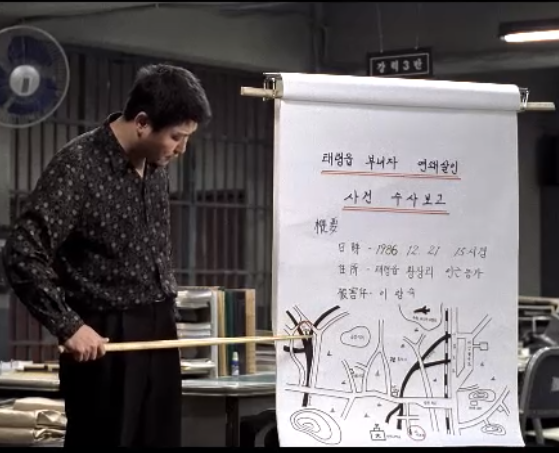 강력 3반
태령읍 부녀자 연쇄살인
사건 수사보고
概要
日時 - 1986 12. 21 15시경
住所 - 태령읍 황상리 인근농가
被害者 - 이향숙